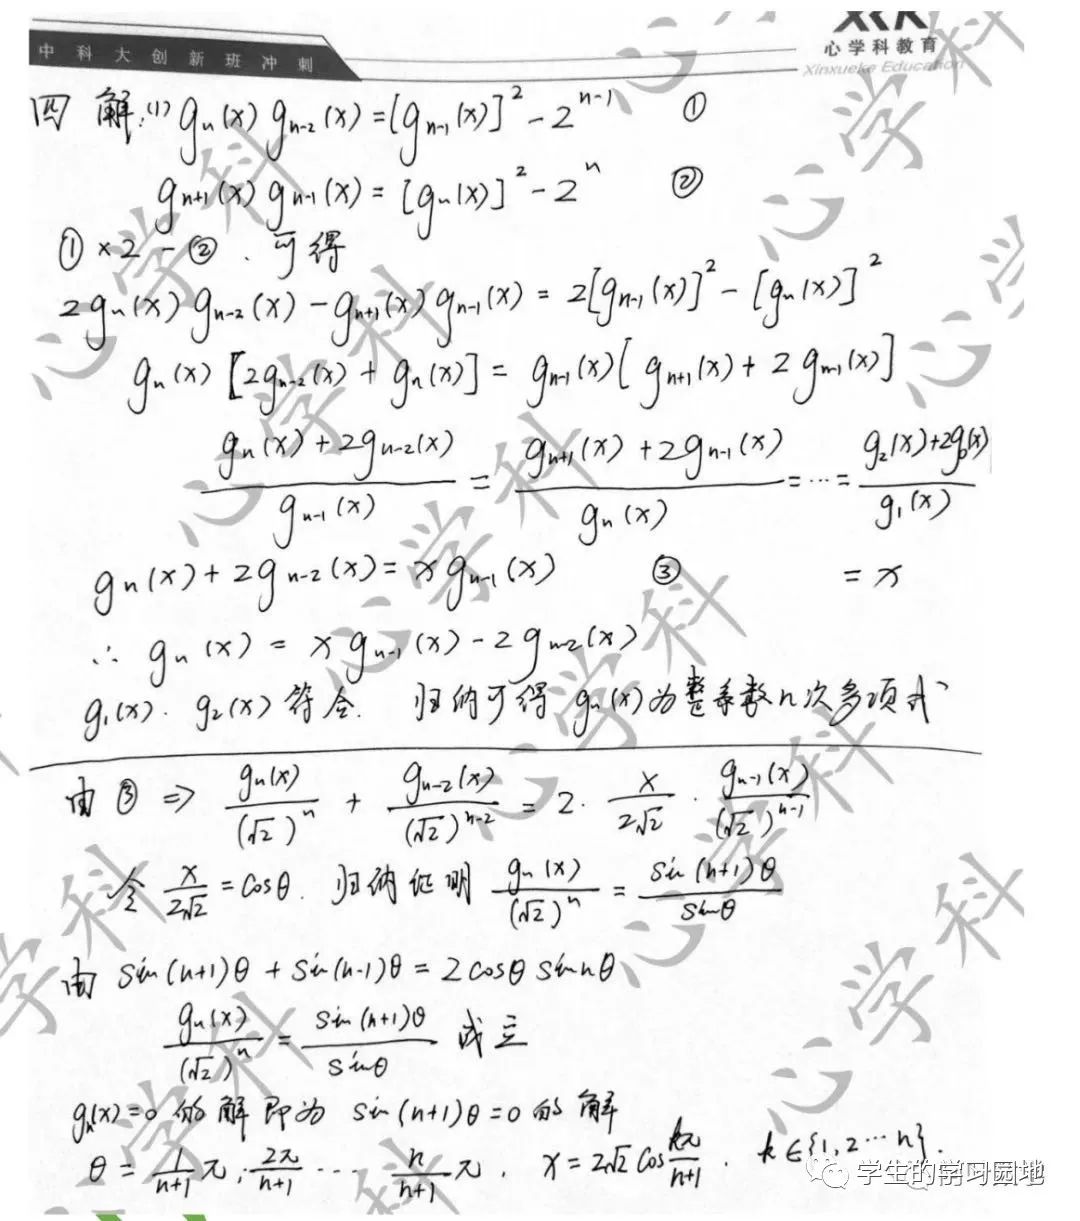 中科大创新班冲刺
心学科教育
Xinxueke Education
四 解:(1) gₙ(x) gₙ₋₂(x) = [gₙ₋₁(x)]² - 2ⁿ⁻¹ ①
gₙ₊₁(x) gₙ₋₁(x) = [gₙ(x)]² - 2ⁿ ②
①×2 - ②. 可得
2gₙ(x) gₙ₋₂(x) - gₙ₊₁(x) gₙ₋₁(x) = 2[gₙ₋₁(x)]² - [gₙ(x)]²
gₙ(x) [2gₙ₋₂(x) + gₙ(x)] = gₙ₋₁(x) [gₙ₊₁(x) + 2gₙ₋₁(x)]
(gₙ(x) + 2gₙ₋₂(x)) / gₙ₋₁(x) = (gₙ₊₁(x) + 2gₙ₋₁(x)) / gₙ(x) = ⋯ = (g₂(x) + 2g₀(x)) / g₁(x)
gₙ(x) + 2gₙ₋₂(x) = x gₙ₋₁(x) ③ = x
∴ gₙ(x) = x gₙ₋₁(x) - 2gₙ₋₂(x)
g₁(x). g₂(x) 符合. 归纳可得 gₙ(x) 为整系数n次多项式
由③ ⇒ gₙ(x)/(√2)ⁿ + gₙ₋₂(x)/(√2)ⁿ⁻² = 2 · x/(2√2) · gₙ₋₁(x)/(√2)ⁿ⁻¹
令 x/(2√2) = cosθ. 归纳证明 gₙ(x)/(√2)ⁿ = sin(n+1)θ / sinθ
由 sin(n+1)θ + sin(n-1)θ = 2cosθ sin nθ
gₙ(x)/(√2)ⁿ = sin(n+1)θ / sinθ 成立
gₙ(x)=0 的解即为 sin(n+1)θ=0 的解
θ = 1/(n+1) π, 2π/(n+1) ⋯ n/(n+1) π. x = 2√2 cos kπ/(n+1). k∈{1,2⋯n}.
学生的学习园地